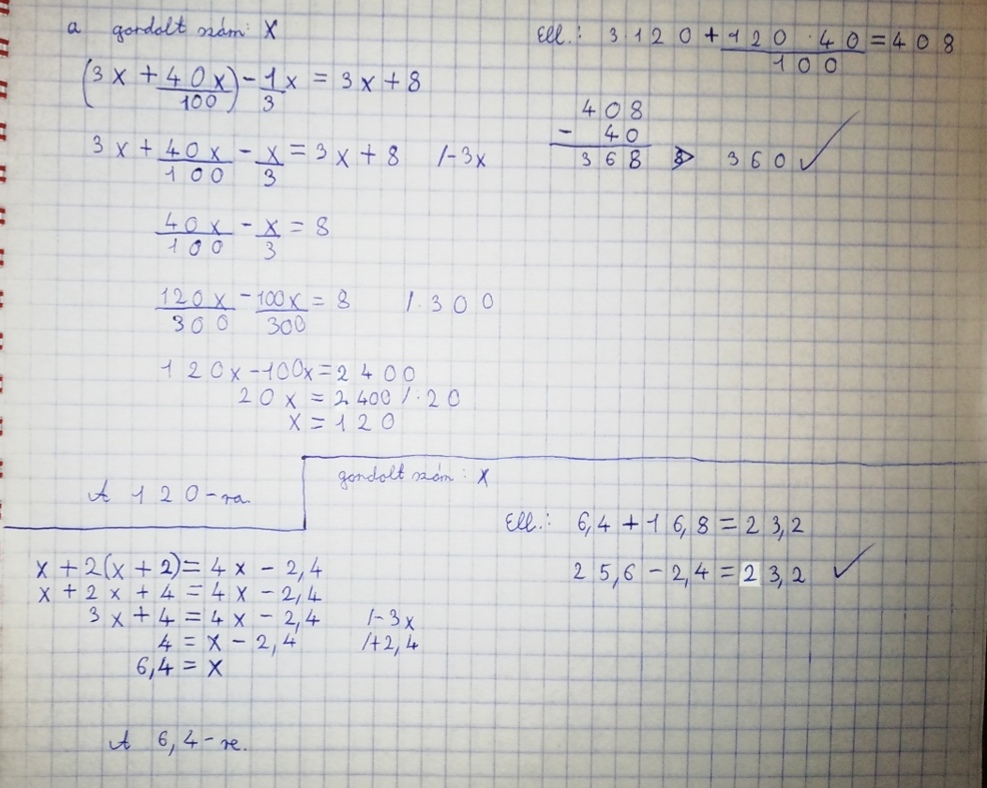 a gondolt szám: x
(3x + 40x/100) - 1/3 x = 3x + 8
3x + 40x/100 - x/3 = 3x + 8 /-3x
40x/100 - x/3 = 8
120x/300 - 100x/300 = 8 /·300
120x - 100x = 2400
20x = 2400 /:20
x = 120
A 120-ra.
Ell.: 3·120 + 120·40/100 = 408
408
- 40
368 > 360 ✓
gondolt szám: x
x + 2(x + 2) = 4x - 2,4
x + 2x + 4 = 4x - 2,4
3x + 4 = 4x - 2,4 /-3x
4 = x - 2,4 /+2,4
6,4 = x
A 6,4-re.
Ell.: 6,4 + 16,8 = 23,2
25,6 - 2,4 = 23,2 ✓